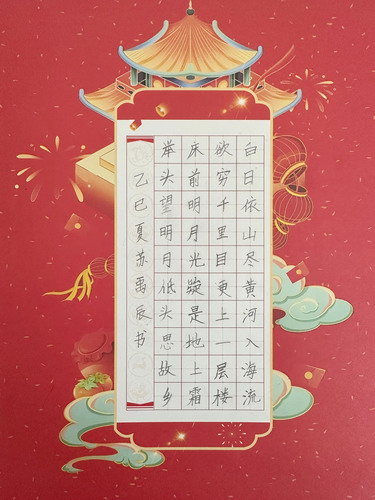 白日依山尽黄河入海流
欲穷千里目更上一层楼
床前明月光疑是地上霜
举头望明月低头思故乡
乙巳夏苏禹辰书